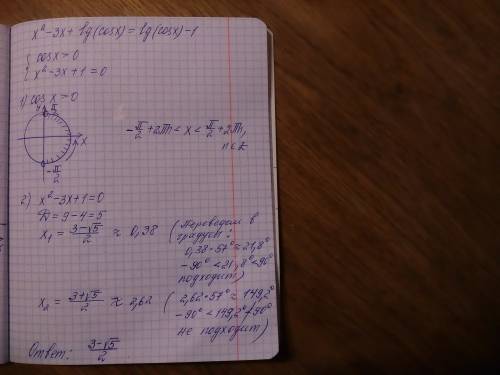 x² - 3x + lg(cosx) = lg(cosx) - 1
{ cosx > 0
{ x² - 3x + 1 = 0
1) cos x > 0
π/2
x
-π/2
-π/2 + 2πn < x < π/2 + 2πn,
n ∈ Z
2) x² - 3x + 1 = 0
D = 9 - 4 = 5
x₁ = (3-√5)/2 ≈ 0,38 (Переведем в
градусы:
0,38·57° ≈ 21,8°
-90° < 21,8° < 90°
подходит)
x₂ = (3+√5)/2 ≈ 2,62 (2,62·57° ≈ 149,2°
-90° < 149,2° ≮ 90°
не подходит)
Ответ: (3-√5)/2